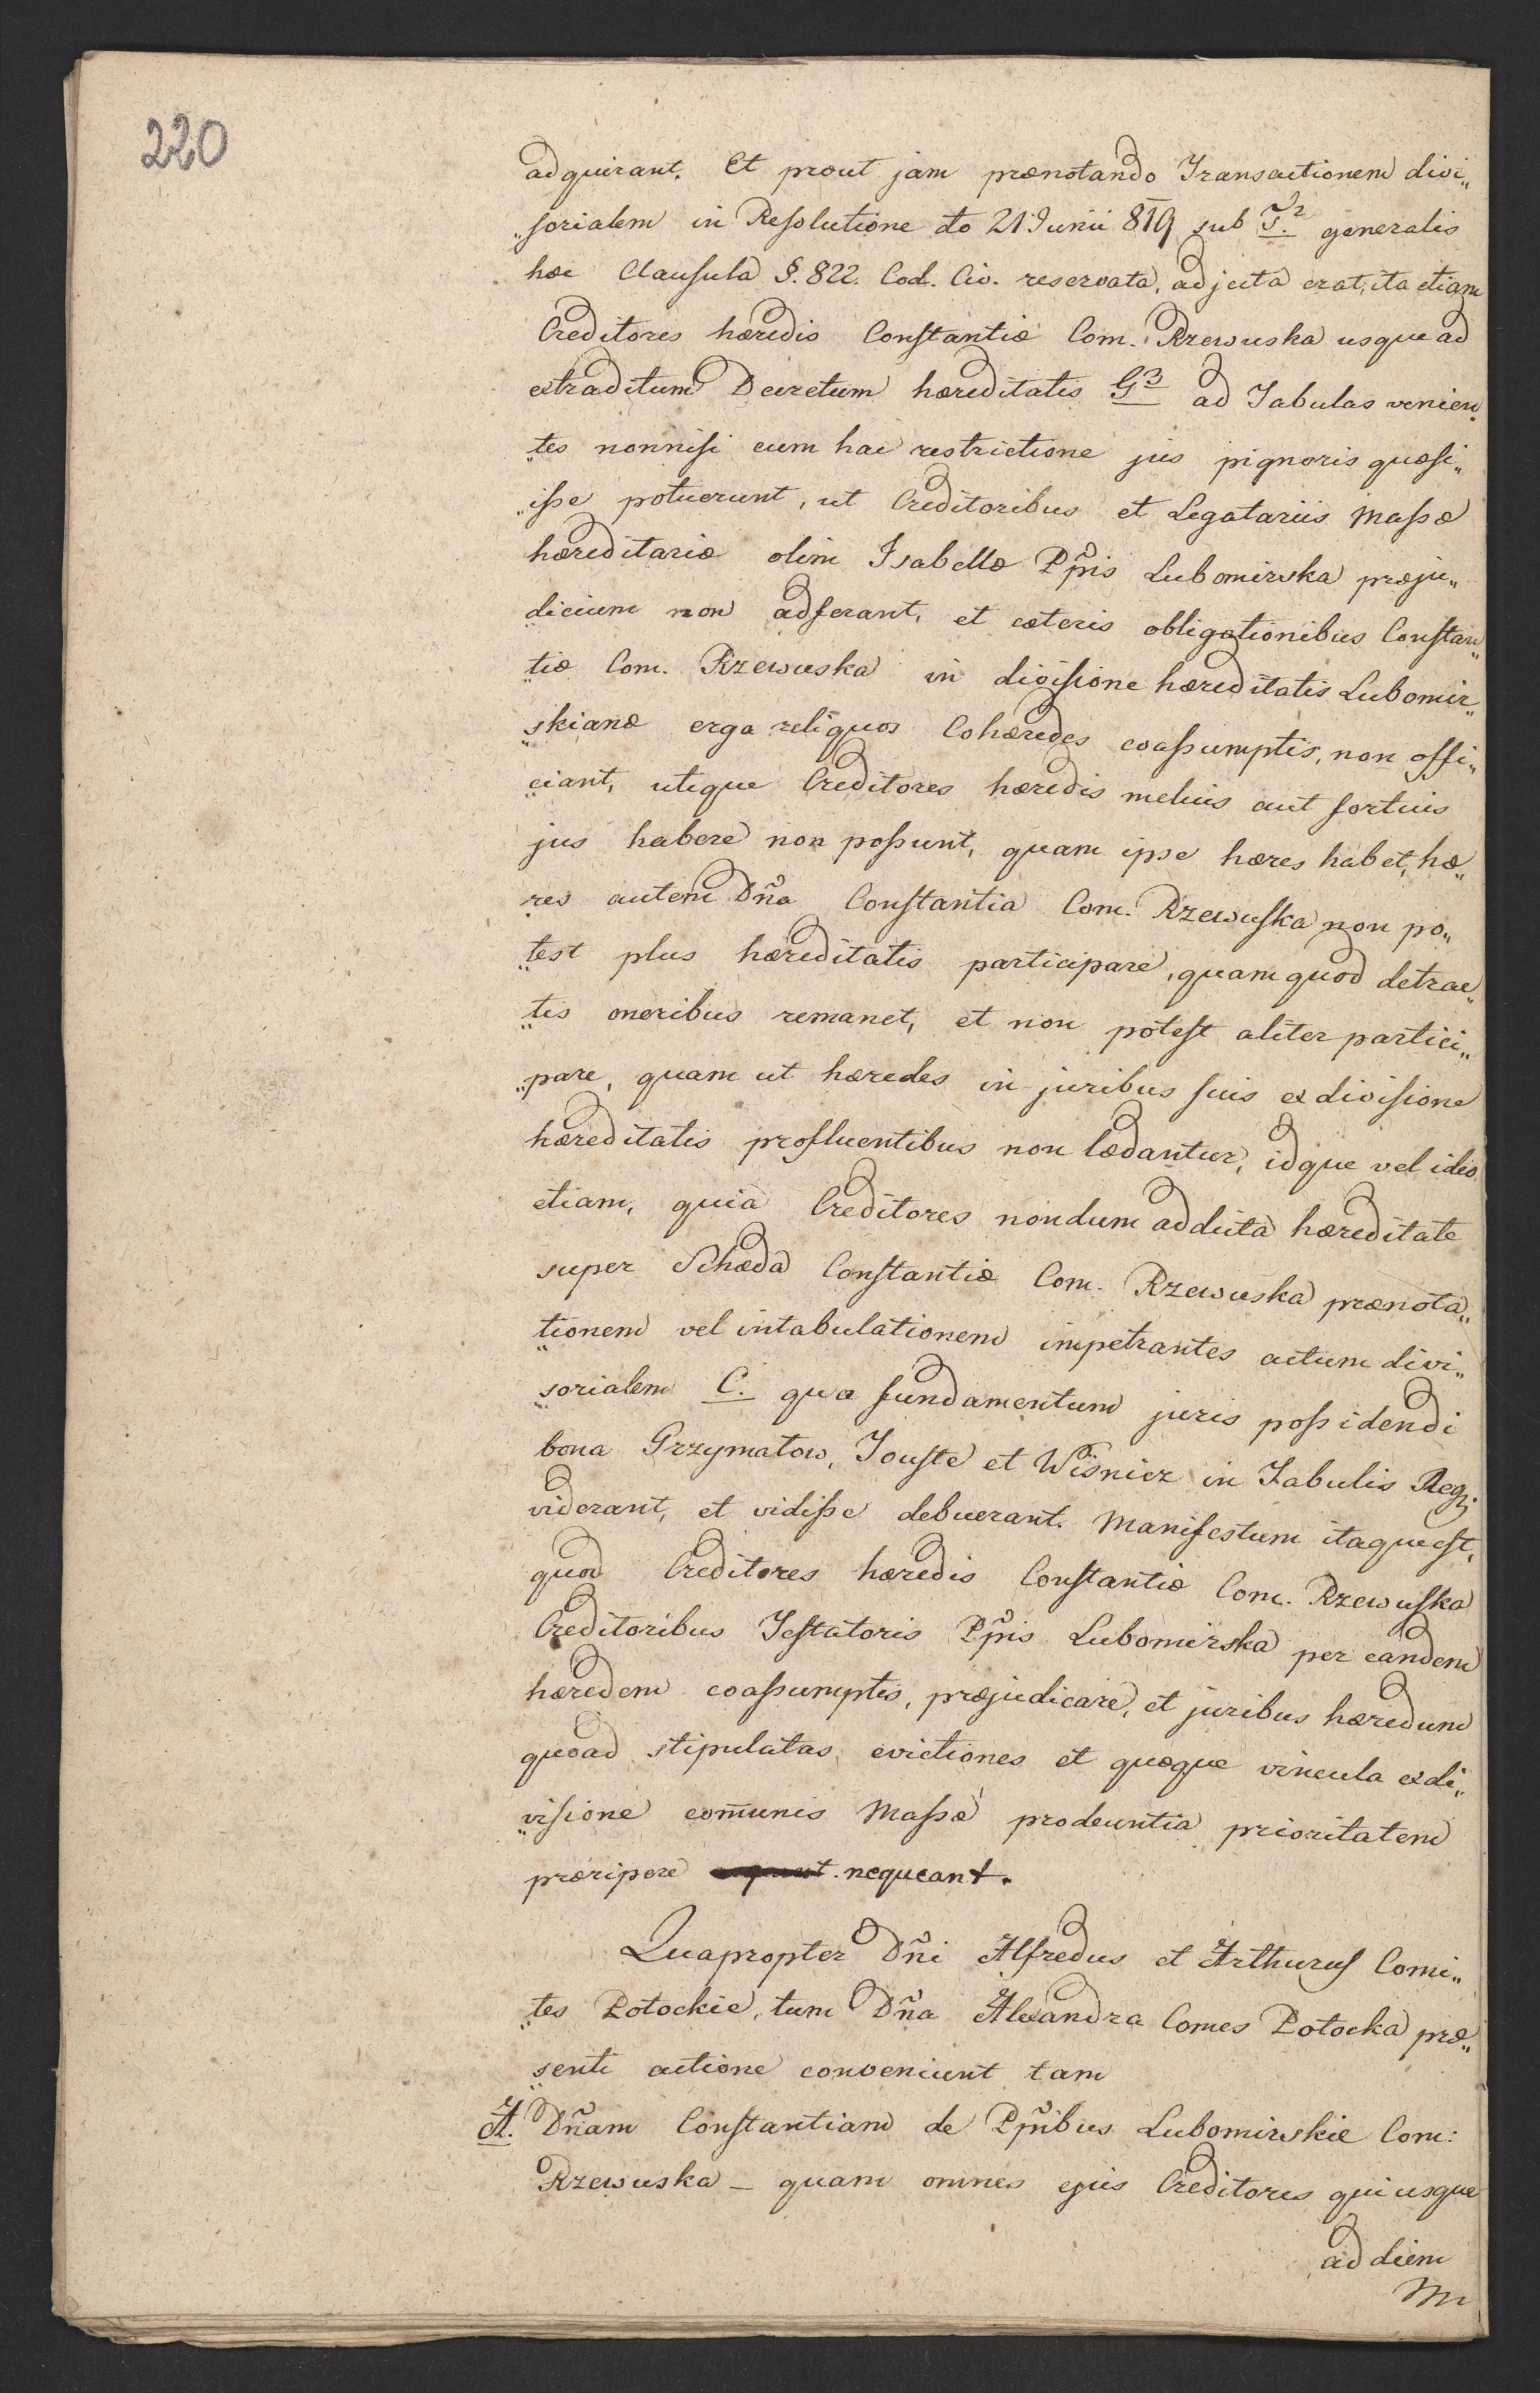 220
adquirant. Et prout jam prænotando Transactionem divi„
„sorialem in Resolutione dto 21 Junii 819 sub T.² generalis
hæc Clausula §. 822. Cod. Civ. reservata, adjecta erat, ita etiam
Creditores hæredis Constantiæ Com. Rzewuska usque ad
extraditum Decretum hæreditatis G³ ad Tabulas venien„
„tes nonnisi cum hac restrictione jus pignoris quæsi„
„isse potuerunt, ut Creditoribus et Legatariis Massæ
hæreditariæ olim Isabellæ Ppis Lubomirska præju„
dicium non adferant, et cæteris obligationibus Constan„
„tiæ Com. Rzewuska in divisione hæreditatis Lubomir„
„skianæ erga reliquos Cohæredes coassumptis, non offi„
„ciant, utique Creditores hæredis melius aut fortius
jus habere non possunt, quam ipse hæres habet, hæ„
„res autem Dña Constantia Com. Rzewuska non po„
„test plus hæreditatis participare, quam quod detrac„
„tis oneribus remanet, et non potest aliter partici„
„pare, quam ut hæredes in juribus suis ex divisione
hæreditatis profluentibus non lædantur, idque vel ideo
etiam, quia Creditores nondum addicta hæreditate
super Schæda Constantiæ Com. Rzewuska prænota„
„tionem vel intabulationem impetrantes actum divi„
„sorialem C. qua fundamentum juris possidendi
bona Grzymałow, Touste et Wiśnicz in Tabulis Regj
viderant, et vidisse debuerant. Manifestum itaque est,
quod Creditores hæredis Constantiæ Com. Rzewuska
Creditoribus Testatoris Ppis Lubomirska per eandem
hæredem coassumptis, præjudicare, et juribus hæredum
quoad stipulatas evictiones et quæque vincula ex di„
„visione com̄unis Massæ prodeuntia prioritatem
præripere nequeant.
Quapropter Dñi Alfredus et Arthurus Comi„
„tes Potockie, tum Dña Alexandra Comes Potocka præ„
„senti actione conveniunt tam
A. Dñam Constantiam de Ppibus Lubomirskie Com:
Rzewuska – quam omnes ejus Creditores qui usque
ad diem